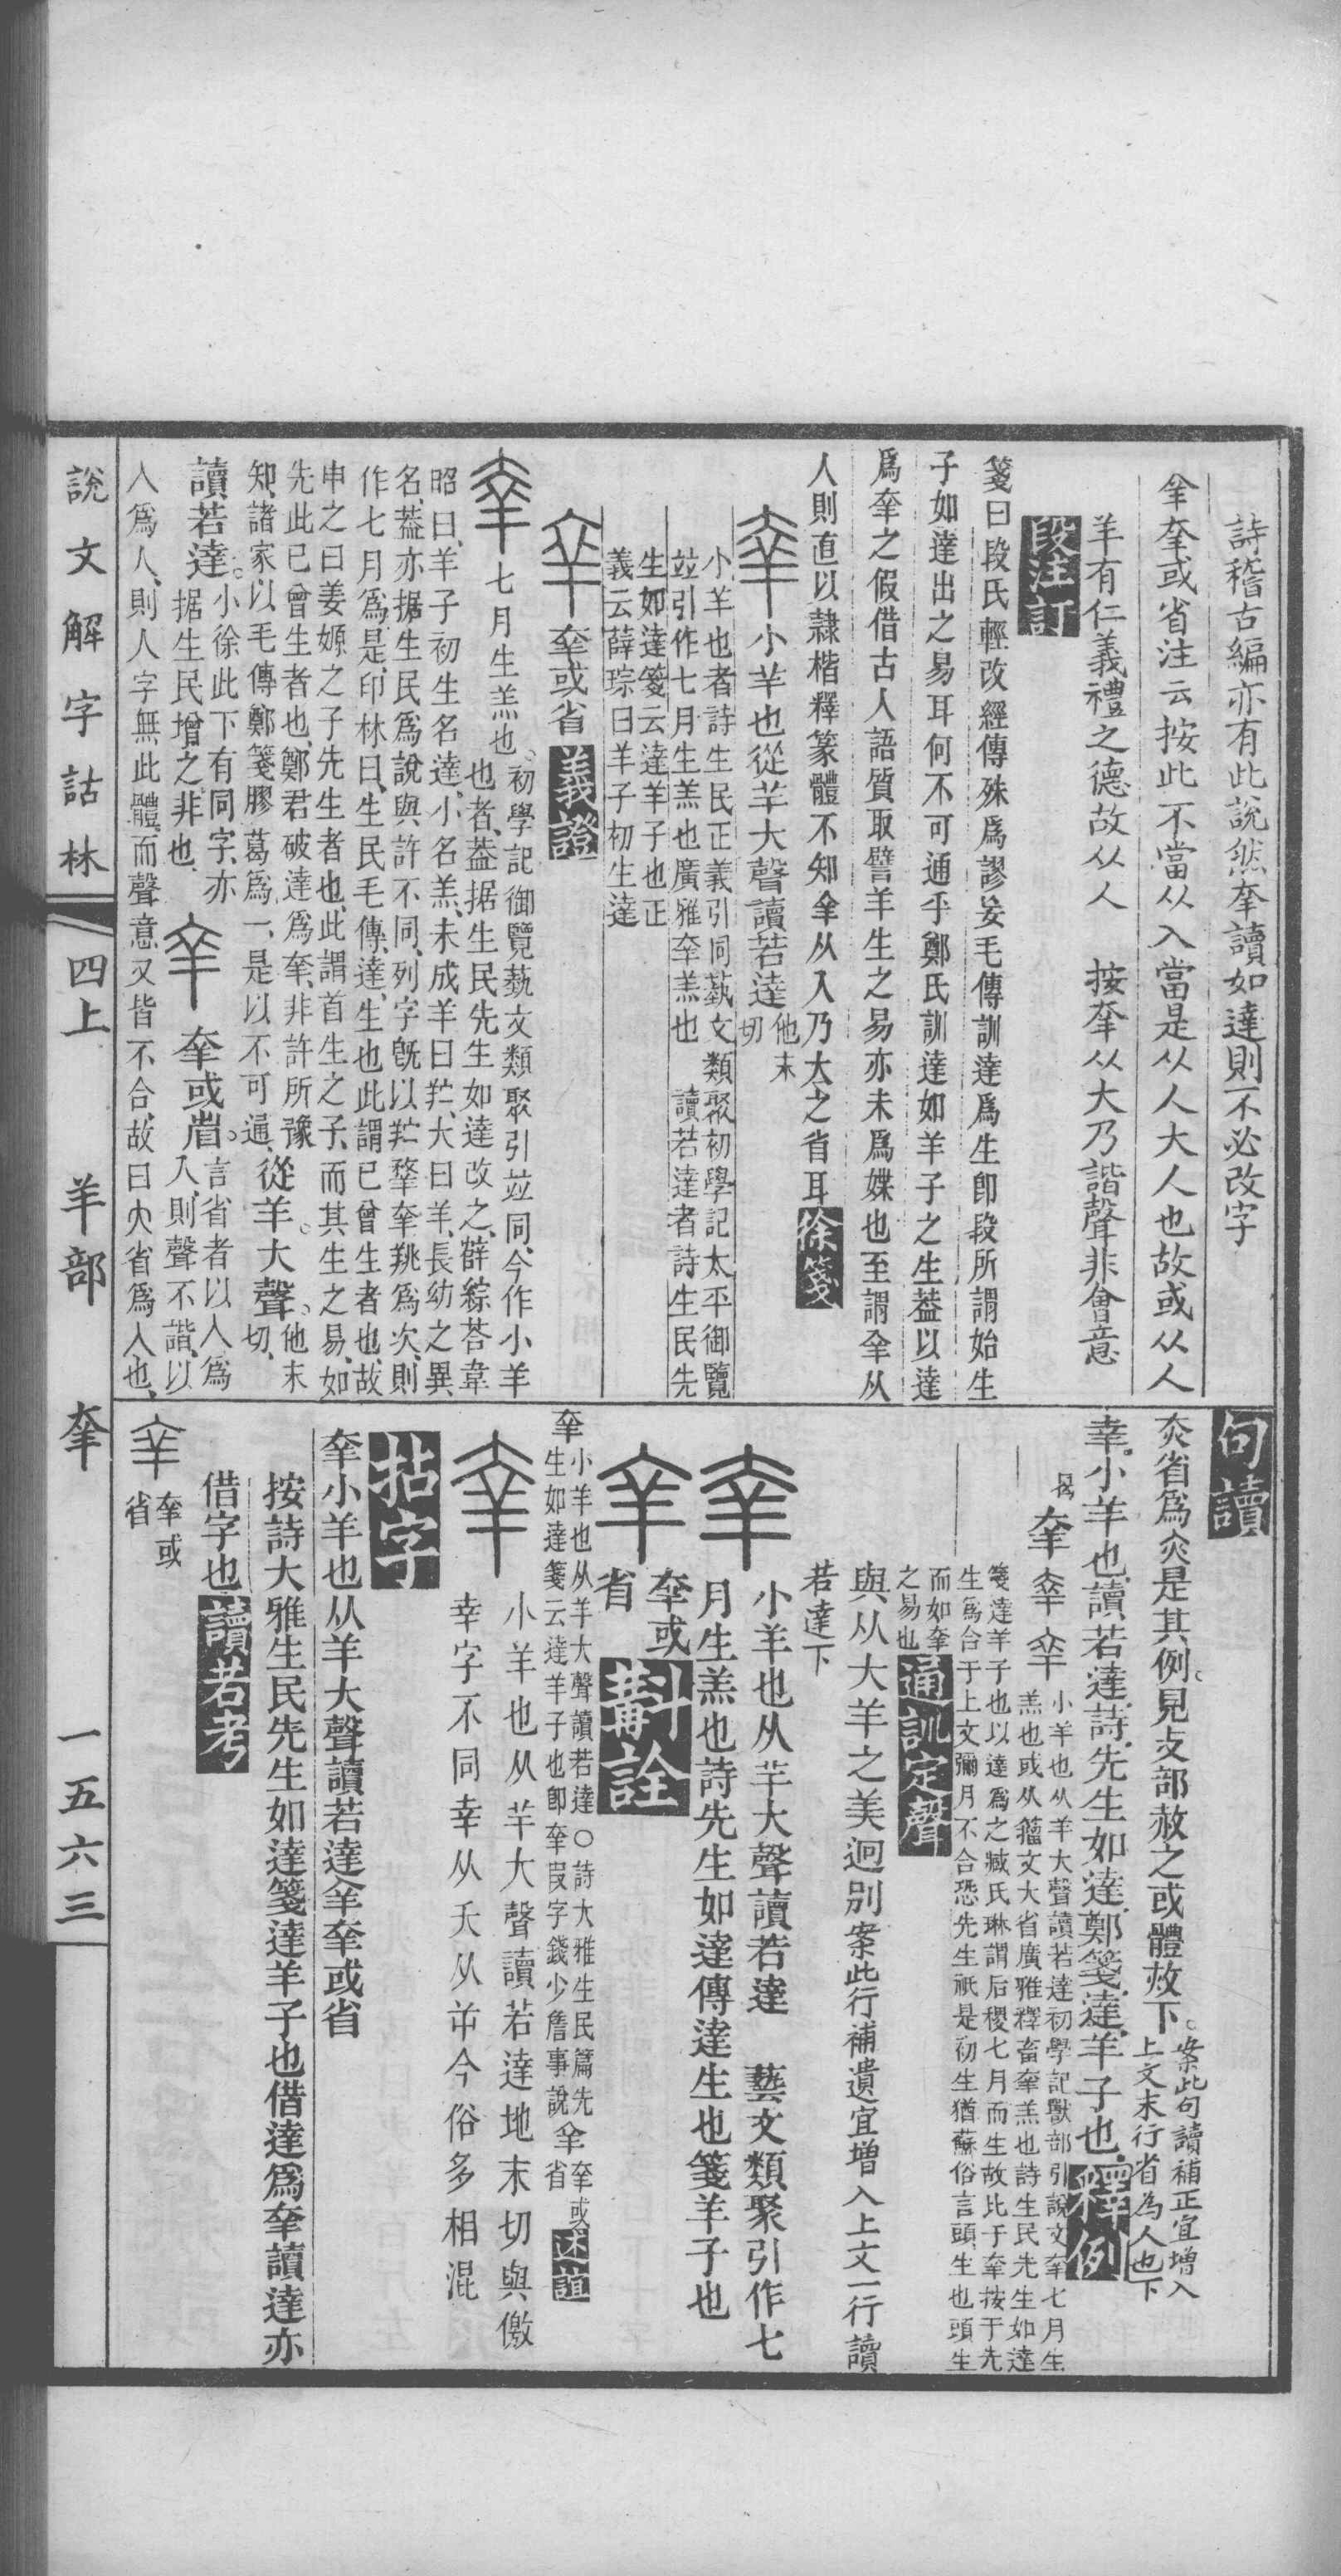 詩稽古編亦有此說然羍讀如達則不必改字
羍或省注云按此不當从入當是从人大人也故或从人
羊有仁義禮之德故从人　按羍从大乃諧聲非會意
段注訂
箋曰段氏輕改經傳殊爲謬妄毛傳訓達爲生卽段所謂始生
子如達出之易耳何不可通乎鄭氏訓達如羊子之生葢以達
爲羍之假借古人語質取譬羊生之易亦未爲媟也至謂𦍒从
人則直以隸楷釋篆體不知𦍒从入乃大之省耳徐箋
羍小羊也從羊大聲讀若達他末切
小羊也者詩生民正義引同藝文類聚初學記太平御覽
竝引作七月生羔也廣雅羍羔也　讀若達者詩生民先
生如達箋云達羊子也正
義云薛琮曰羊子初生達
𦍒羍或省義證
羍七月生羔也初學記御覽藝文類聚引竝同今作小羊
也者葢据生民先生如達改之薛綜荅韋
昭曰羊子初生名達小名羔未成羊曰羜大曰羊長幼之異
名葢亦据生民爲說與許不同列字旣以羜羍羍羍爲次則
作七月爲是印林曰生民毛傳達生也此謂已曾生者也故
申之曰姜嫄之子先生者也此謂首生之子而其生之易如
先此已曾生者也鄭君破達爲羍非許所豫
知諸家以毛傳鄭箋膠葛爲一是以不可通從羊大聲他末切
讀若達小徐此下有同字亦
据生民增之非也𦍒羍或省言省者以入爲
入則聲不諧以
人爲人則人字無此體而聲意又皆不合故曰大省爲人也
句讀
省爲是其例見攴部赦之或體𢼜下案此句讀補正宜增入
上文末行省為人也下
羍小羊也讀若達詩先生如達鄭箋達羊子也釋例
羍小羊也从羊大聲讀若達初學記獸部引說文羍七月生
羔也或从籀文大省廣雅釋畜羍羔也詩生民先生如達
箋達羊子也以達爲之臧氏琳謂后稷七月而生故比于羍按于先
生爲合于上文彌月不合恐先生祇是初生猶蘇俗言頭生也頭生
而如羍
之易也通訓定聲
與从大羊之美迥別案此行補遺宜增入上文一行讀
若達下
羍小羊也从羊大聲讀若達　藝文類聚引作七
月生羔也詩先生如達傳達生也箋羊子也
𦍒羍或省斠詮
羍小羊也从羊大聲讀若達○詩大雅生民篇先
生如達箋云達羊子也卽羍叚字錢少詹事說𦍒羍或省述誼
羍小羊也从羊大聲讀若達他末切與儌
幸字不同幸从夭从屰今俗多相混
拈字
羍小羊也从羊大聲讀若達𦍒羍或省
按詩大雅生民先生如達箋達羊子也借達爲羍讀達亦
借字也讀若考
𦍒羍或省
說文解字詁林
四上　羊部　羍
一五六三